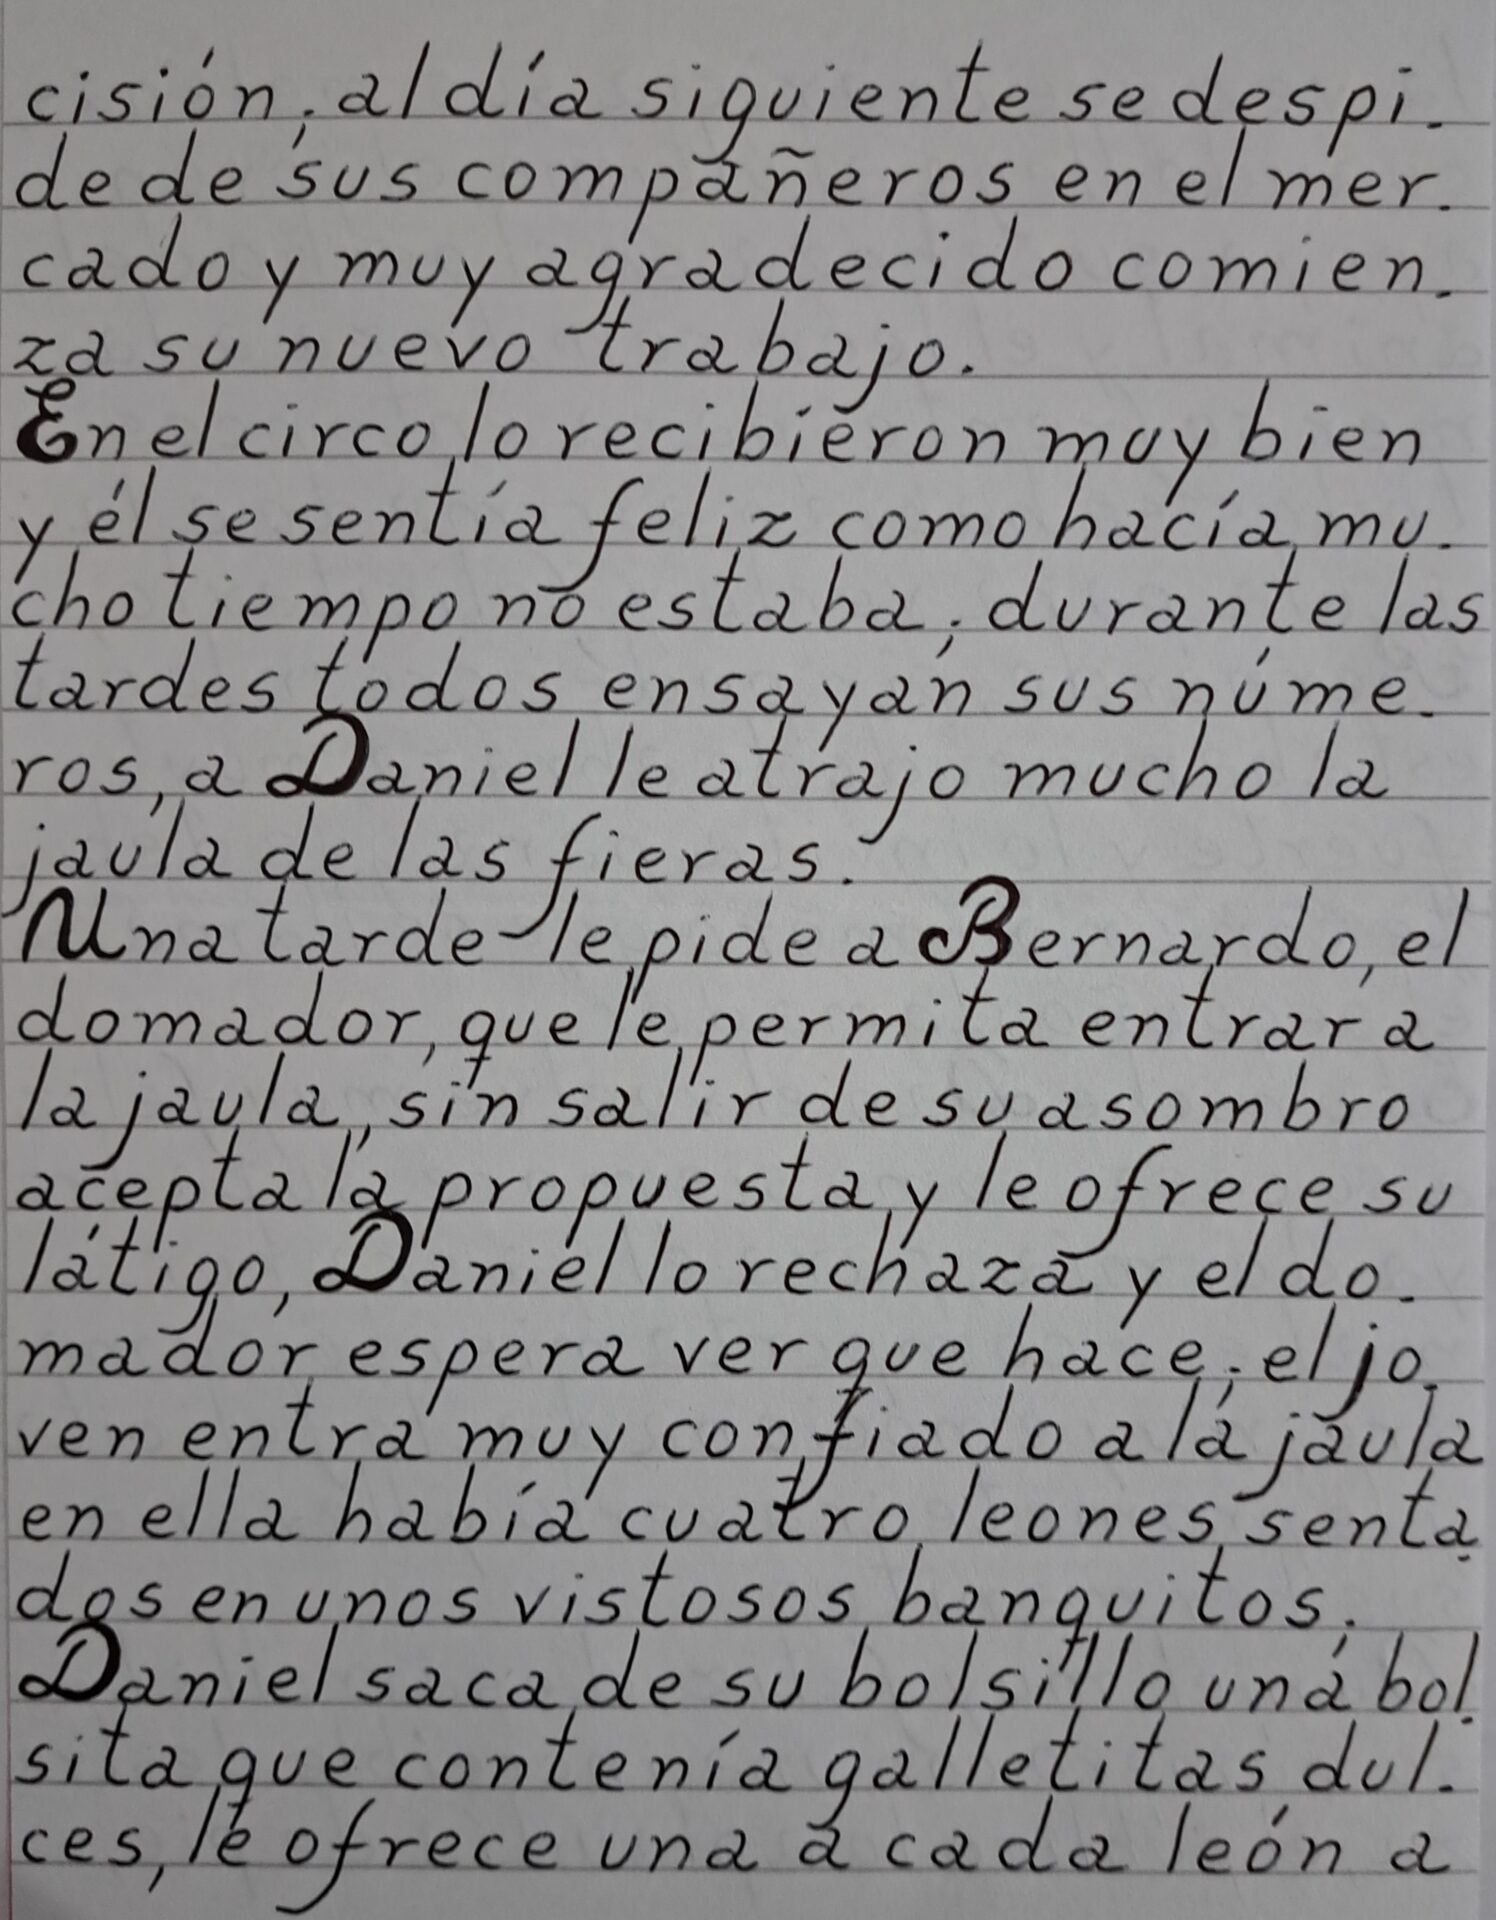 cisión; al día siguiente se despi-
de de sus compañeros en el mer-
cado y muy agradecido comien-
za su nuevo trabajo.
En el circo lo recibieron muy bien
y él se sentía feliz como hacía mu-
cho tiempo no estaba; durante las
tardes todos ensayan sus núme-
ros, a Daniel le atrajo mucho la
jaula de las fieras.
Una tarde le pide a Bernardo, el
domador, que le permita entrar a
la jaula, sin salir de su asombro
acepta la propuesta y le ofrece su
látigo, Daniel lo rechaza y el do-
mador espera ver que hace; el jo-
ven entra muy confiado a la jaula
en ella había cuatro leones senta-
dos en unos vistosos banquitos.
Daniel saca de su bolsillo una bol-
sita que contenía galletitas dul-
ces, le ofrece una a cada león a